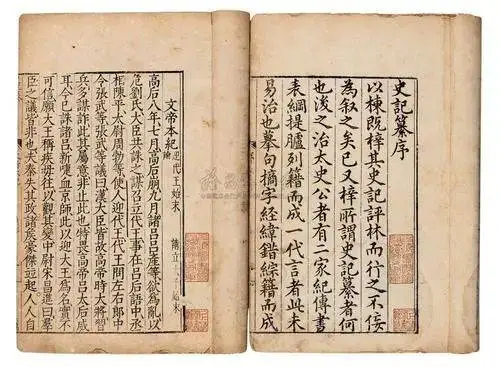 史記纂序
以棟既梓其史記評林而行之不佞
為叙之矣已又梓所謂史記纂者何
也後之治太史公者有二家紀傳書
表綱提臚列籍而成一代言者此未
易治也摹句摘字經緯錯綜籍而成
文帝本紀 迎代王始末
高后八年七月高后崩九月諸呂呂產等欲為亂以
危劉氏大臣共誅之謀召立代王事在呂后語中丞
相陳平太尉周勃等使人迎代王代王問左右郎中
令張武等張武等議曰漢大臣皆故高帝時大將習
兵多謀詐此其屬意非止此也特畏高帝呂太后威
耳今已誅諸呂新喋血京師此以迎大王為名實不
可信願大王稱疾毋往以觀其變中尉宋昌進曰羣
臣之議皆非也夫秦失其政諸侯豪傑竝起人人自